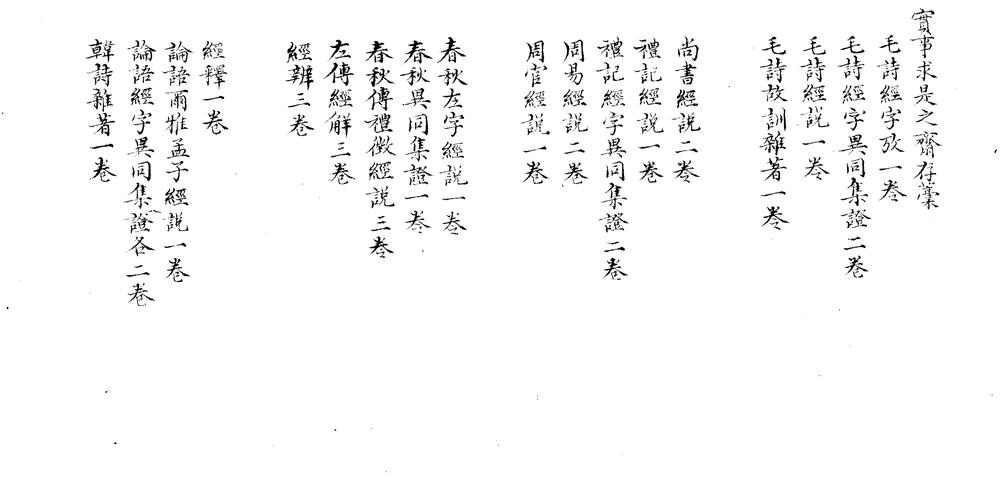 實事求是之齋存藁
毛詩經字攷一卷
毛詩經字異同集證二卷
毛詩經説一卷
毛詩故訓雜著一卷
尚書經説二卷
禮記經説一卷
禮記經字異同集證二卷
周易經説二卷
周官經説一卷
春秋左字經説一卷
春秋異同集證一卷
春秋傳禮徵經説三卷
左傳經解三卷
經辨三卷
經釋一卷
論語爾雅孟子經説一卷
論語經字異同集證各二卷
韓詩雜著一卷